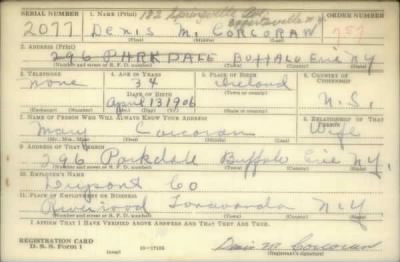 SERIAL NUMBER 1. NAME (Print) ORDER NUMBER
182 Springville Ave. Eggertsville N.Y.
2077 DENIS M. CORCORAN 787
2. ADDRESS (Print)
296 PARKDALE BUFFALO Erie N.Y
(Number and street or R. F. D. number) (Town) (County) (State)
3. TELEPHONE 4. AGE IN YEARS 5. PLACE OF BIRTH 6. COUNTRY OF CITIZENSHIP
none 34 Ireland
DATE OF BIRTH (Town or county)
April 13 1906 U.S.
(Exchange) (Number) (Mo.) (Day) (Yr.) (State or country)
7. NAME OF PERSON WHO WILL ALWAYS KNOW YOUR ADDRESS 8. RELATIONSHIP OF THAT PERSON
Mary Corcoran Wife
(Mr., Mrs., Miss) (First) (Middle) (Last)
9. ADDRESS OF THAT PERSON
296 Parkdale Buffalo Erie N.Y.
(Number and street or R. F. D. number) (Town) (County) (State)
10. EMPLOYER'S NAME
Dupont Co
11. PLACE OF EMPLOYMENT OR BUSINESS
Tonawanda N.Y
(Number and street or R. F. D. number) (Town) (County) (State)
I AFFIRM THAT I HAVE VERIFIED ABOVE ANSWERS AND THAT THEY ARE TRUE.
REGISTRATION CARD
D. S. S. Form 1 (over) 16—17105 Denis M. Corcoran
(Registrant's signature)